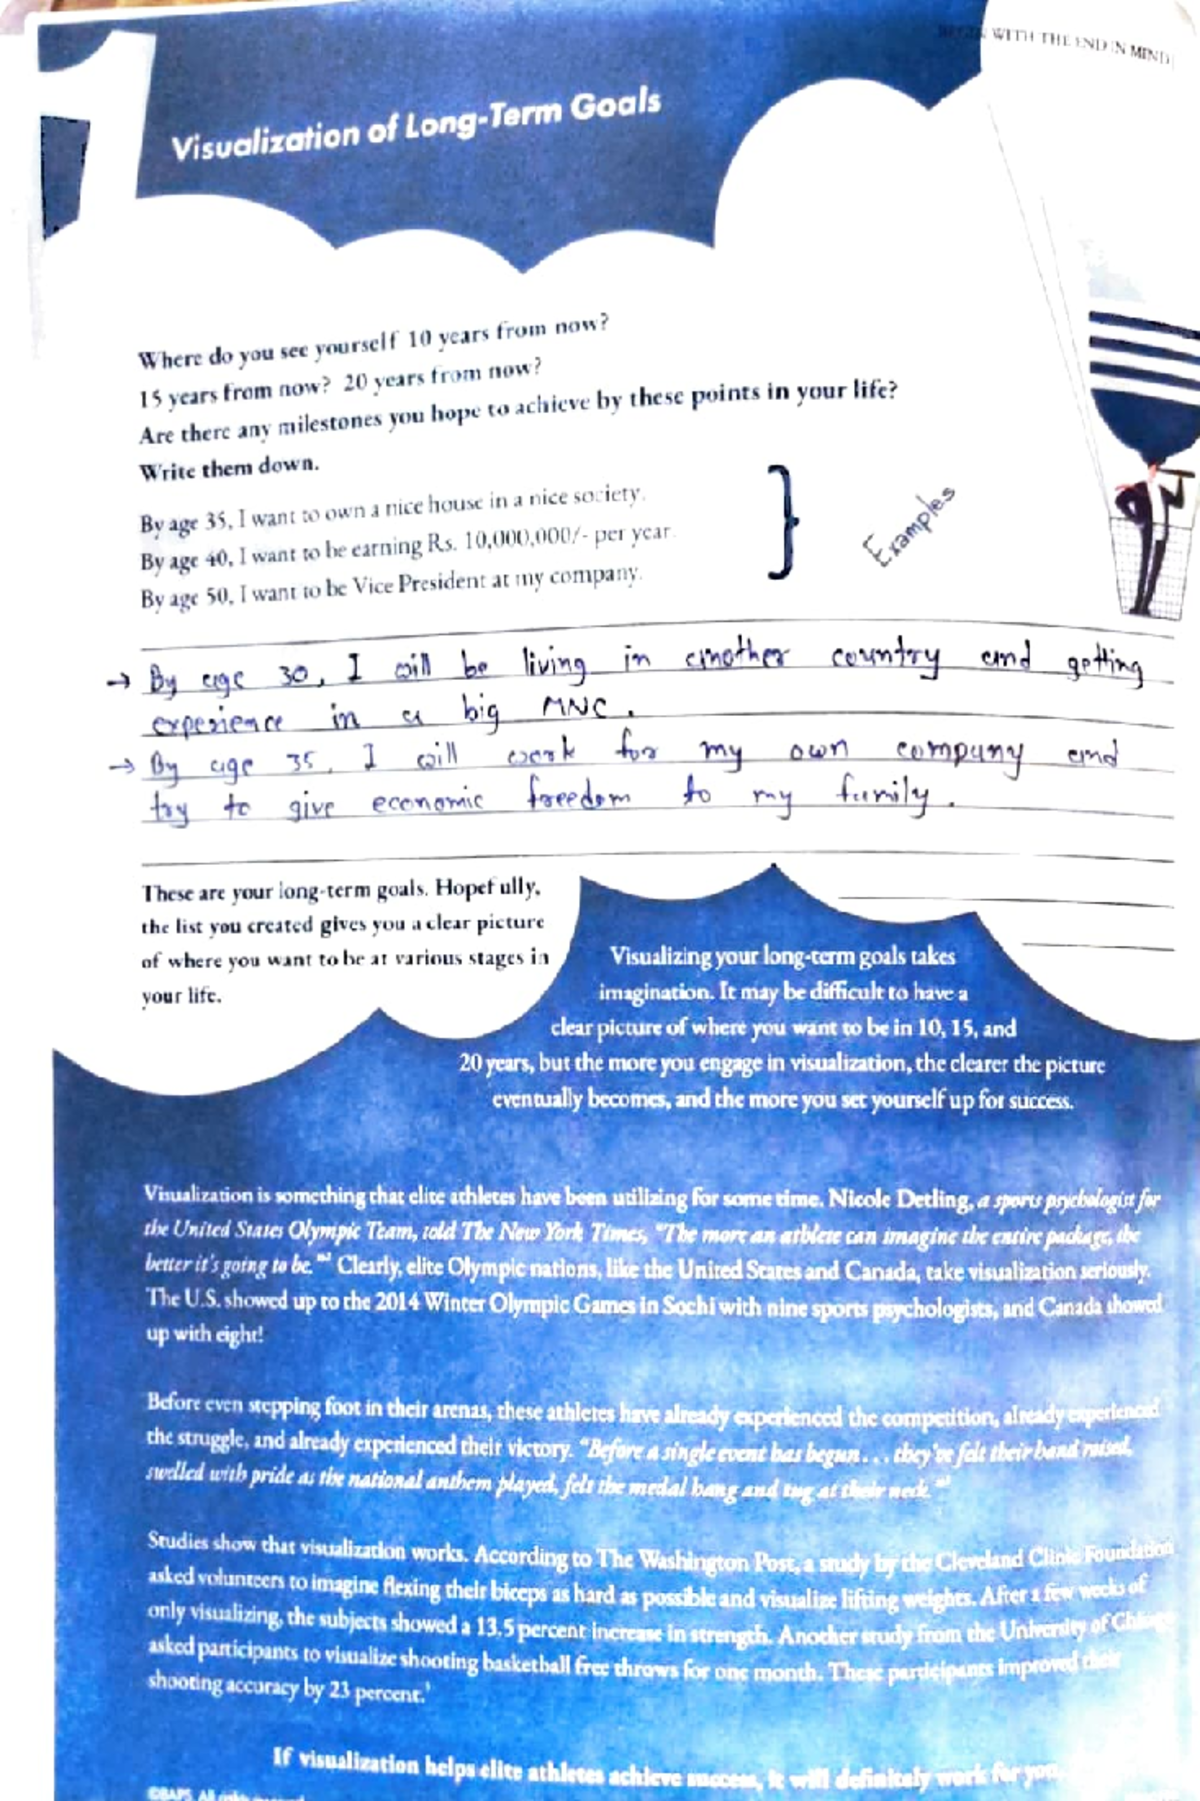 BEGIN WITH THE END IN MIND
1
Visualization of Long-Term Goals
Where do you see yourself 10 years from now?
15 years from now? 20 years from now?
Are there any milestones you hope to achieve by these points in your life?
Write them down.
By age 35, I want to own a nice house in a nice society.
By age 40, I want to be earning Rs. 10,000,000/- per year.
By age 50, I want to be Vice President at my company.
} Examples
→ By age 30, I will be living in another country and getting
experience in a big MNC.
→ By age 35, I will work for my own company and
try to give economic freedom to my family.
These are your long-term goals. Hopef ully,
the list you created gives you a clear picture
of where you want to be at various stages in
your life.
Visualizing your long-term goals takes
imagination. It may be difficult to have a
clear picture of where you want to be in 10, 15, and
20 years, but the more you engage in visualization, the clearer the picture
eventually becomes, and the more you set yourself up for success.
Visualization is something that elite athletes have been utilizing for some time. Nicole Detling, a sports psychologist for
the United States Olympic Team, told The New York Times, "The more an athlete can imagine the entire package, the
better it's going to be." Clearly, elite Olympic nations, like the United States and Canada, take visualization seriously.
The U.S. showed up to the 2014 Winter Olympic Games in Sochi with nine sports psychologists, and Canada showed
up with eight!
Before even stepping foot in their arenas, these athletes have already experienced the competition, already experienced
the struggle, and already experienced their victory. "Before a single event has begun... they've felt their hand raised,
swelled with pride as the national anthem played, felt the medal hang and tug at their neck."
Studies show that visualization works. According to The Washington Post, a study by the Cleveland Clinic Foundation
asked volunteers to imagine flexing their biceps as hard as possible and visualize lifting weights. After a few weeks of
only visualizing, the subjects showed a 13.5 percent increase in strength. Another study from the University of Chicago
asked participants to visualize shooting basketball free throws for one month. These participants improved their
shooting accuracy by 23 percent.
If visualization helps elite athletes achieve success, it will definitely work for you.
©BAPS. All rights reserved